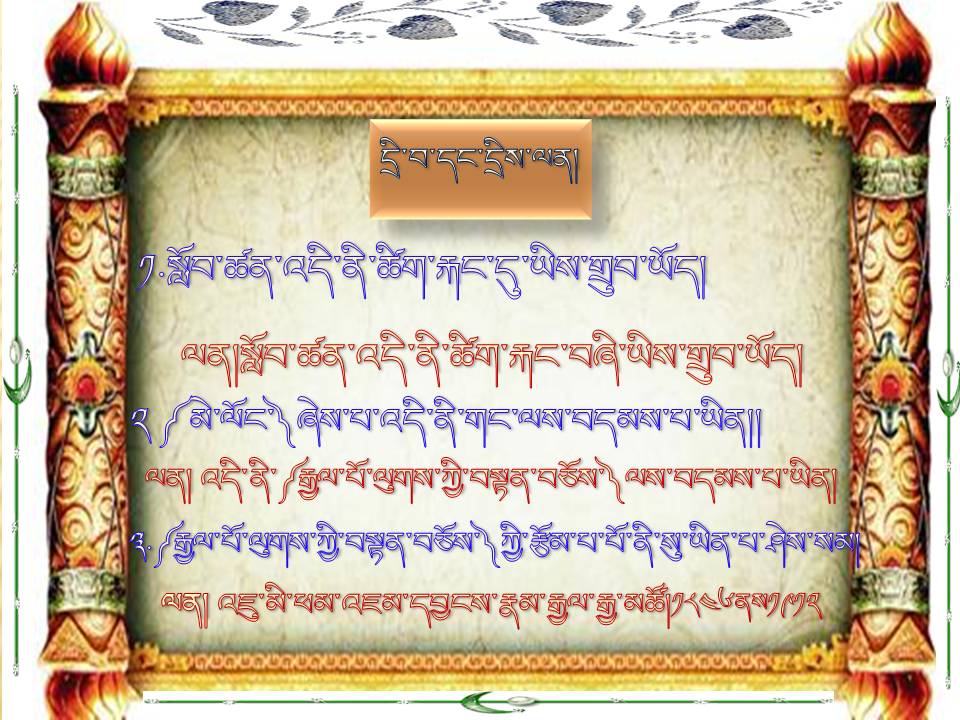 དྲི་བ་དང་དྲིས་ལན།
༡.སློབ་ཚན་འདི་ནི་ཚིག་རྐང་དུ་ཡིས་གྲུབ་ཡོད།
ལན།སློབ་ཚན་འདི་ནི་ཚིག་རྐང་བཞི་ཡིས་གྲུབ་ཡོད།
༢ ༼ མེ་ལོང་༽ ཞེས་པ་འདི་ནི་གང་ལས་བདམས་པ་ཡིན།།
ལན། འདི་ནི་ ༼རྒྱལ་པོ་ལུགས་ཀྱི་བསྟན་བཅོས་༽ ལས་བདམས་པ་ཡིན།
༣.༼རྒྱལ་པོ་ལུགས་ཀྱི་བསྟན་བཅོས་༽ཀྱི་རྩོམ་པ་པོ་ནི་སུ་ཡིན་པ་ཤེས་སམ།
ལན། འཇུ་མི་ཕམ་འཇམ་དབྱངས་རྣམ་རྒྱལ་རྒྱ་མཚོ།༡༨༤༦ནས༡༩༡༢